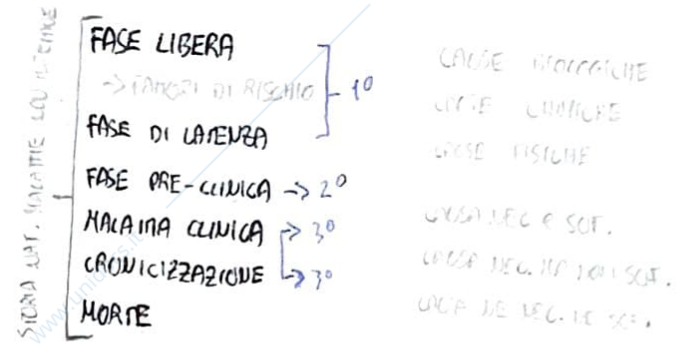 STORIA NAT. MALATTIE
FASE LIBERA
-> FATTORI DI RISCHIO
1°
FASE DI LATENZA
FASE PRE-CLINICA -> 2°
MALATTIA CLINICA -> 3°
CRONICIZZAZIONE -> 3°
MORTE
CAUSE BIOLOGICHE
CAUSE CHIMICHE
CAUSE FISICHE
CAUSA NEC. E SUF.
CAUSA NEC. MA NON SUF.
CAUSA NE NEC. NE SUF.